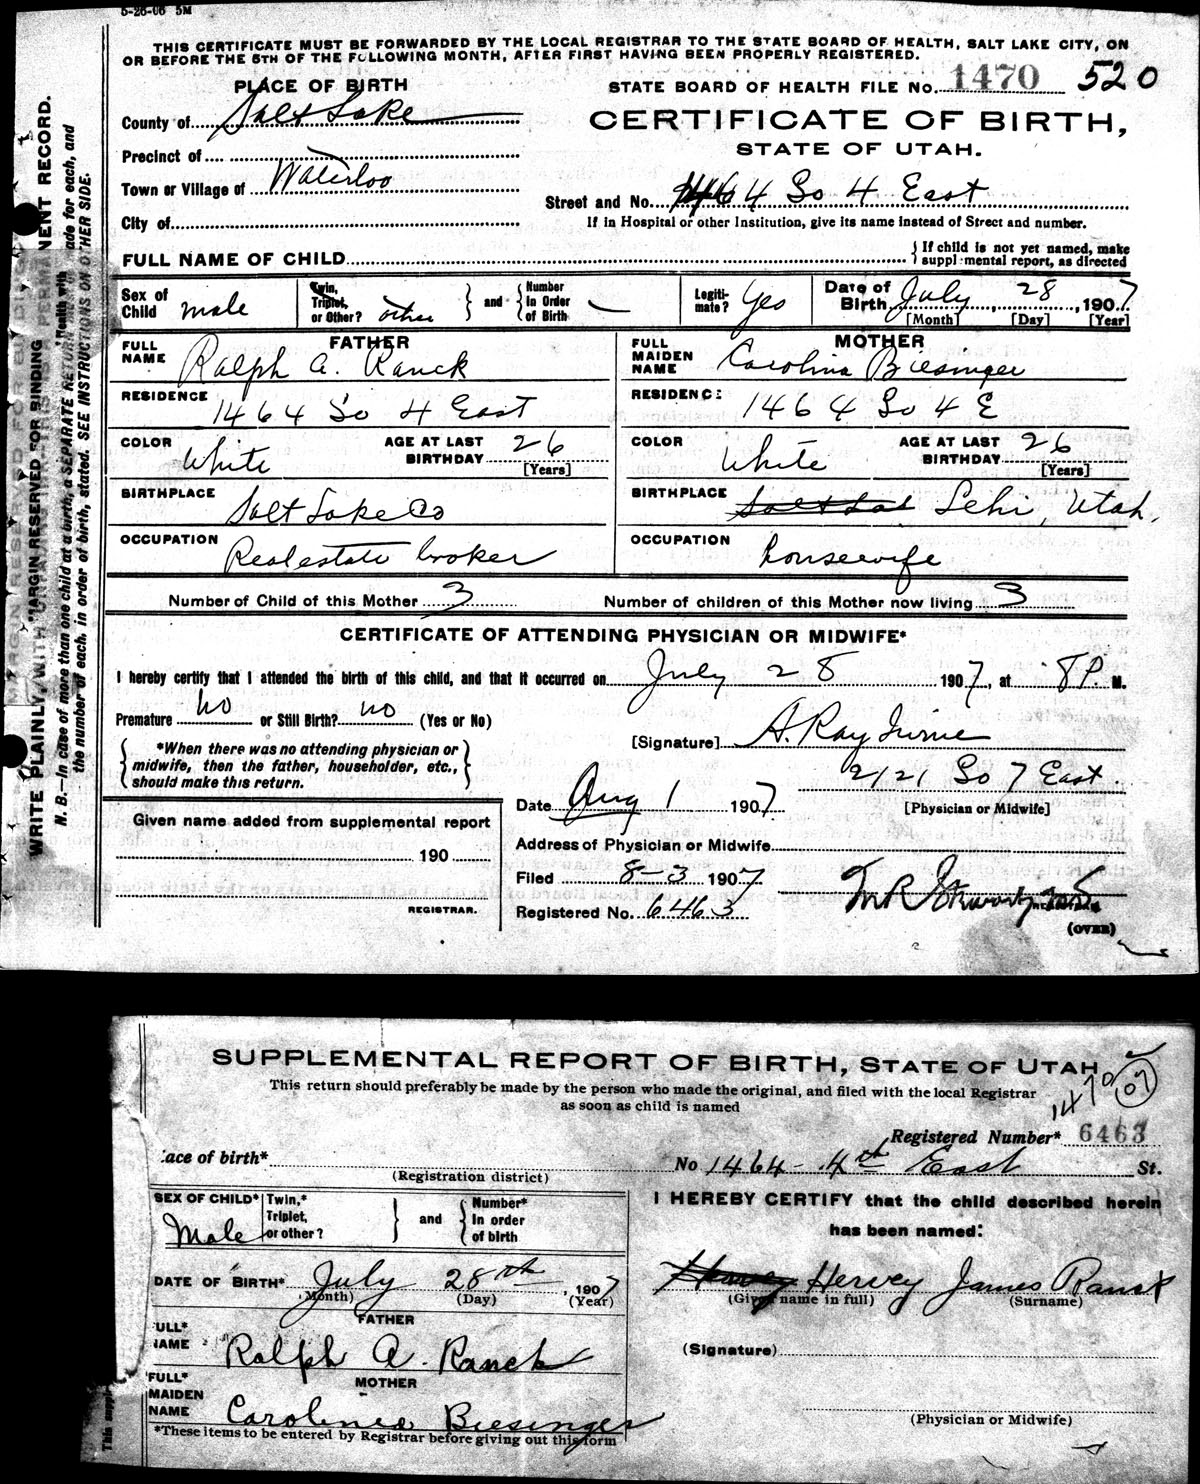 5-26-06 5M
THIS CERTIFICATE MUST BE FORWARDED BY THE LOCAL REGISTRAR TO THE STATE BOARD OF HEALTH, SALT LAKE CITY, ON
OR BEFORE THE 5TH OF THE FOLLOWING MONTH, AFTER FIRST HAVING BEEN PROPERLY REGISTERED.
PLACE OF BIRTH
STATE BOARD OF HEALTH FILE NO. 1470 520
County of Salt Lake
CERTIFICATE OF BIRTH,
STATE OF UTAH.
Precinct of
Town or Village of Waterloo
Street and No. 1464 So 4 East
City of
If in Hospital or other Institution, give its name instead of Street and number.
FULL NAME OF CHILD
If child is not yet named, make
supplemental report, as directed
Sex of Child male
Twin, Triplet, or Other? other and Number In Order of Birth
Legiti-mate? Yes
Date of Birth July 28, 1907
[Month] [Day] [Year]
FATHER
MOTHER
FULL NAME Ralph A. Ranck
FULL MAIDEN NAME Carolina Biesinger
RESIDENCE 1464 So 4 East
RESIDENCE 1464 So 4 E
COLOR White AGE AT LAST BIRTHDAY 26 [Years]
COLOR White AGE AT LAST BIRTHDAY 26 [Years]
BIRTHPLACE Salt Lake Co
BIRTHPLACE Lehi, Utah.
OCCUPATION Real estate broker
OCCUPATION housewife
Number of Child of this Mother 3
Number of children of this Mother now living 3
CERTIFICATE OF ATTENDING PHYSICIAN OR MIDWIFE*
I hereby certify that I attended the birth of this child, and that it occurred on July 28 1907, at 8 P. M.
Premature no or Still Birth? no (Yes or No)
*When there was no attending physician or
midwife, then the father, householder, etc.,
should make this return.
[Signature] A. Ray Irvine
2121 So 7 East.
Date Aug 1 1907
[Physician or Midwife]
Given name added from supplemental report
190
REGISTRAR.
Address of Physician or Midwife
Filed 8-3 1907
Registered No. 6463
(OVER)
MARGIN RESERVED FOR BINDING
WRITE PLAINLY, WITH
PERMANENT RECORD.
N. B.—In case of more than one child at a birth, a SEPARATE RETURN
made for each, and
the number of each, in order of birth, stated. SEE INSTRUCTIONS ON OTHER SIDE.
SUPPLEMENTAL REPORT OF BIRTH, STATE OF UTAH
This return should preferably be made by the person who made the original, and filed with the local Registrar
as soon as child is named
1470 07
Registered Number* 6463
ace of birth*
(Registration district)
No 1464 - 4th East St.
SEX OF CHILD* Male
Twin,* Triplet, or other? and Number* In order of birth
I HEREBY CERTIFY that the child described herein
has been named:
DATE OF BIRTH* July 28th, 1907
(Month) (Day) (Year)
Hervey James Ranck
(Given name in full) (Surname)
FATHER
ULL* NAME Ralph A. Ranck
(Signature)
MOTHER
FULL* MAIDEN NAME Carolinea Biesinger
(Physician or Midwife)
*These items to be entered by Registrar before giving out this form